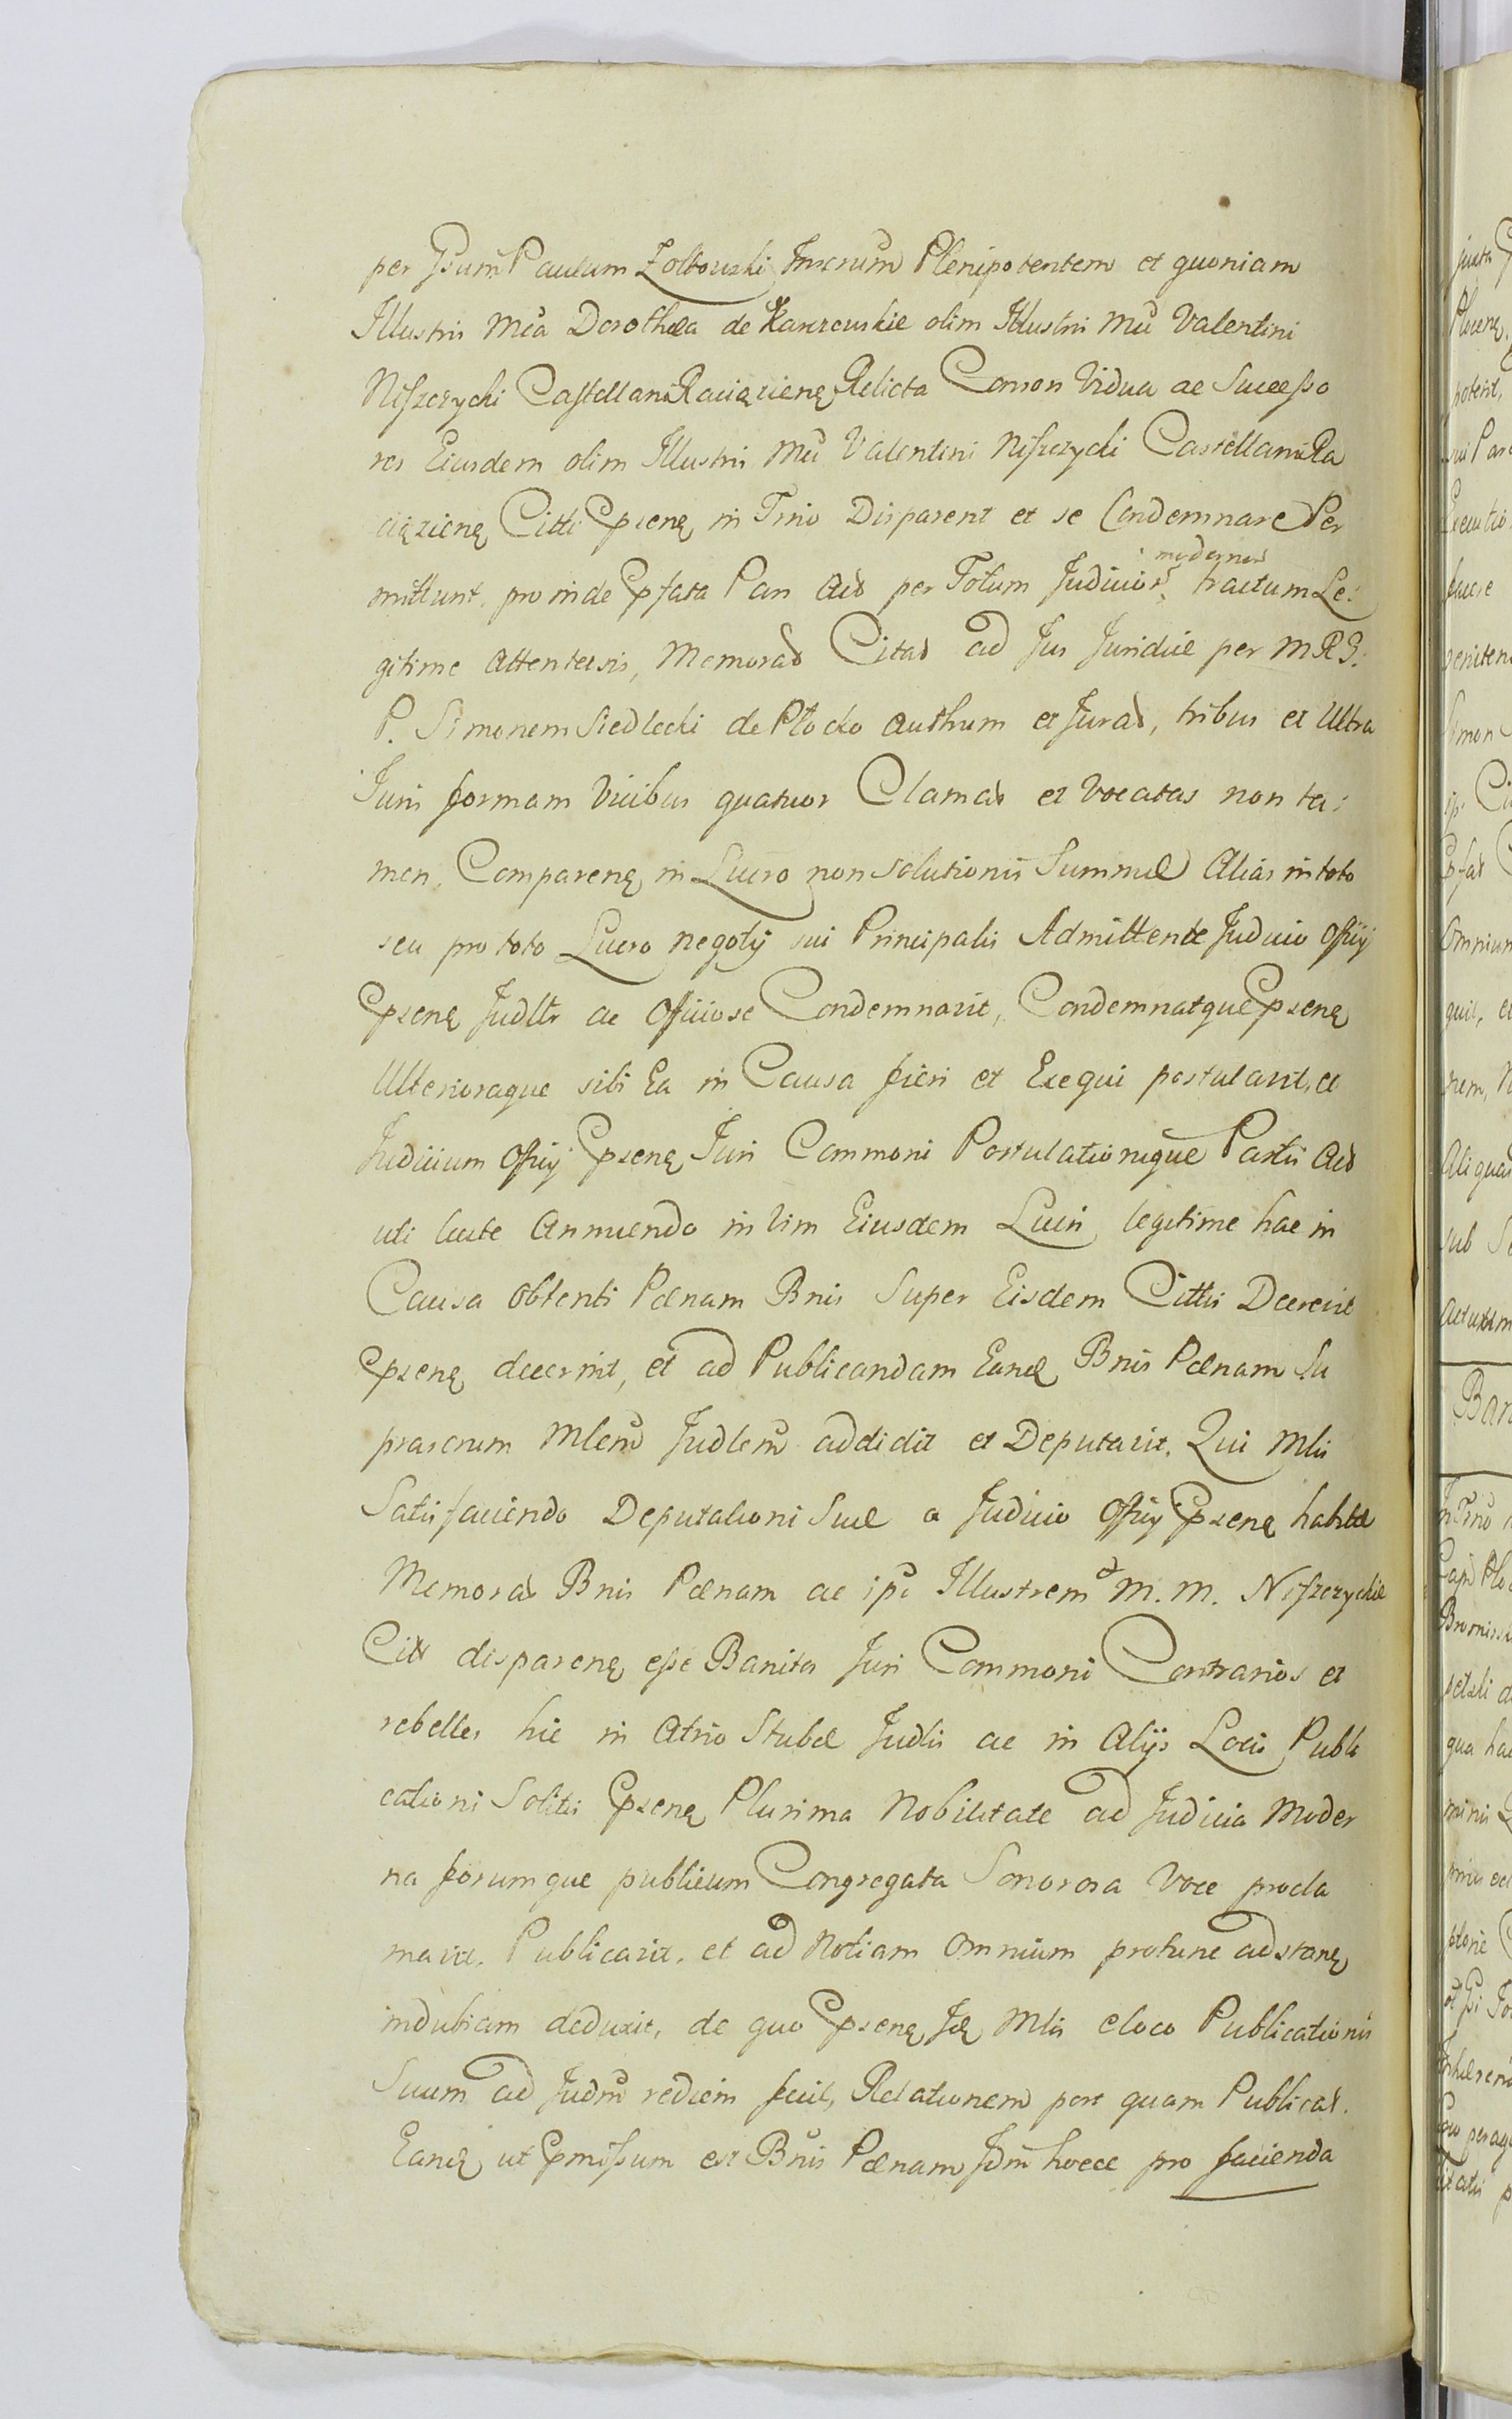 per Gsum Paulum Zołtowski Inscrum Plenipotentem et quoniam
Illustris Mca Dorothæa de Karszewskie olim Illustris Mci Valentini
Niszczycki Castellani Raciązienę Relicta Conson Vidua ac Successo
res Eiusdem olim Illustris Mci Valentini Niszczycki Castellani Ra
ciązienę Citti Epsenę in Trno Disparent et se Condemnare Per
mittunt, pro inde Epfata Pars Acts per Totum Judicior modernor tractum Le:
gitime Attentatis, Memorats Citats ad Jus Juridice per M R J.
P. Simonem Siedlecki de Płocko authum et Jurats, tribus et Ultra
Juris formam Vicibus quatuor Clamats et Vocatas non ta:
men Comparenę in Lucro non solutionis Summæ Alias in toto
seu pro toto Lucro negotÿ sui Principalis Admittente Judicio Offcÿ
Epsenę Judltr ac Officiose Condemnavit, Condemnatque Epsenę
Ulterioraque sibi Ea in Causa fieri et Exequi postulavit, et
Judicium Offcÿ Epsenę Juri Communi Postulationique Partis Acts
uti Juste Annuendo in Vim Eiusdem Lucri legitime hac in
Causa Obtenti Pænam Bnis Super Eisdem Cittis Decrevit
Epsenę decernit, et ad Publicandam Eandę Bnis Pænam Su
prascrum Mlem Judlem addidit et Deputavit. Qui Mlis
Satisfaciendo Deputationi Suæ a Judicio Offcÿ Epsenę habitæ
Memorats Bnis Pænam ac ipso Illustrem et M. M. Niszczyckie
Citt disparenę esse Banitos Juri Communi Contrarios et
rebelles hic in Atrio Stubæ Judlis ac in Alijs Locis Publi
cationi Solitis Epsenę Plurima Nobilitate ad Judicia Moder
na forumque publicum Congregata Sonorosa Voce procla
mavit, Publicavit, et ad Notiam Omnium protunc adstanę
indubiam deduxit, de quo Epsenę Idę Mlis eloco Publicationis
Suum ad Judm rediens fecit, Relationem post quam Publicat.
Eandę ut Epmissum est Bnis Pænam Jdm hocce pro facienda